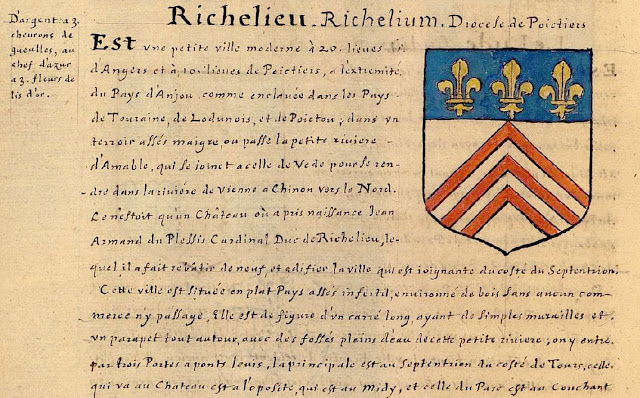 Richelieu. Richelium. Diocese de Poictiers
D'argent a 3.
cheurons de
gueulles, au
chef d'azur
a 3. fleurs de
lis d'or.
Est vne petite ville moderne à 20. lieues
d'Angers et à 10. lieues de Poictiers, a l'extremité
du Pays d'Anjou, comme enclauée dans les Pays
de Touraine, de Lodunois, et de Poictou; dans vn
terroir assés maigre, ou passe la petite riuiere
d'Amable, qui se joinct a celle de Vede pour se ren-
dre dans la riuiere de Vienne a Chinon vers le Nord.
Ce n'estoit qu'un Château où a pris naissance Jean
Armand du Plessis Cardinal Duc de Richelieu, le-
quel il a fait rebâtir de neuf, et adifier la ville qui est joignante du costé du Septentrion.
Cette ville est située en plat Pays assés infertil, enuironné de bois sans aucun com-
merce n'y passage, Elle est de figure d'vn carré long, ayant de simples murailles et
vn parapet tout autour, auec des fossés plains d'eau de cette petite riuiere; on y entre
par trois Portes a ponts leuis, la principale est au Septentrion du costé de Tours, celle
qui va au Chateau est a l'oposite, qui est au Midy, et celle du Parc est au Couchant